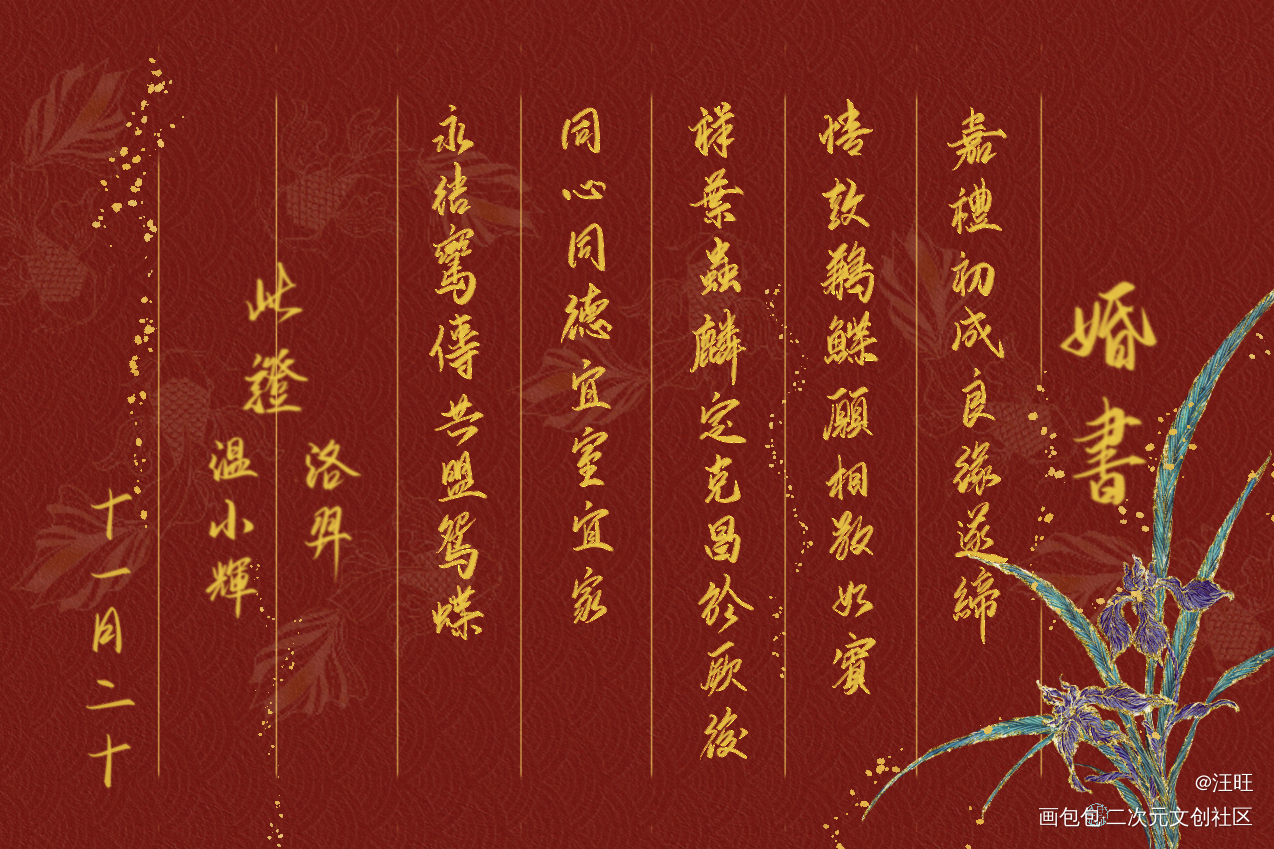 婚書
嘉禮初成良緣遂締
情敦鶼鰈願相敬如賓
祥葉螽麟定克昌於厥後
同心同德宜室宜家
永結鸞儔共盟鴛蝶
此證
洛羿
溫小輝
十一月二十
@汪旺
画包包二次元文创社区